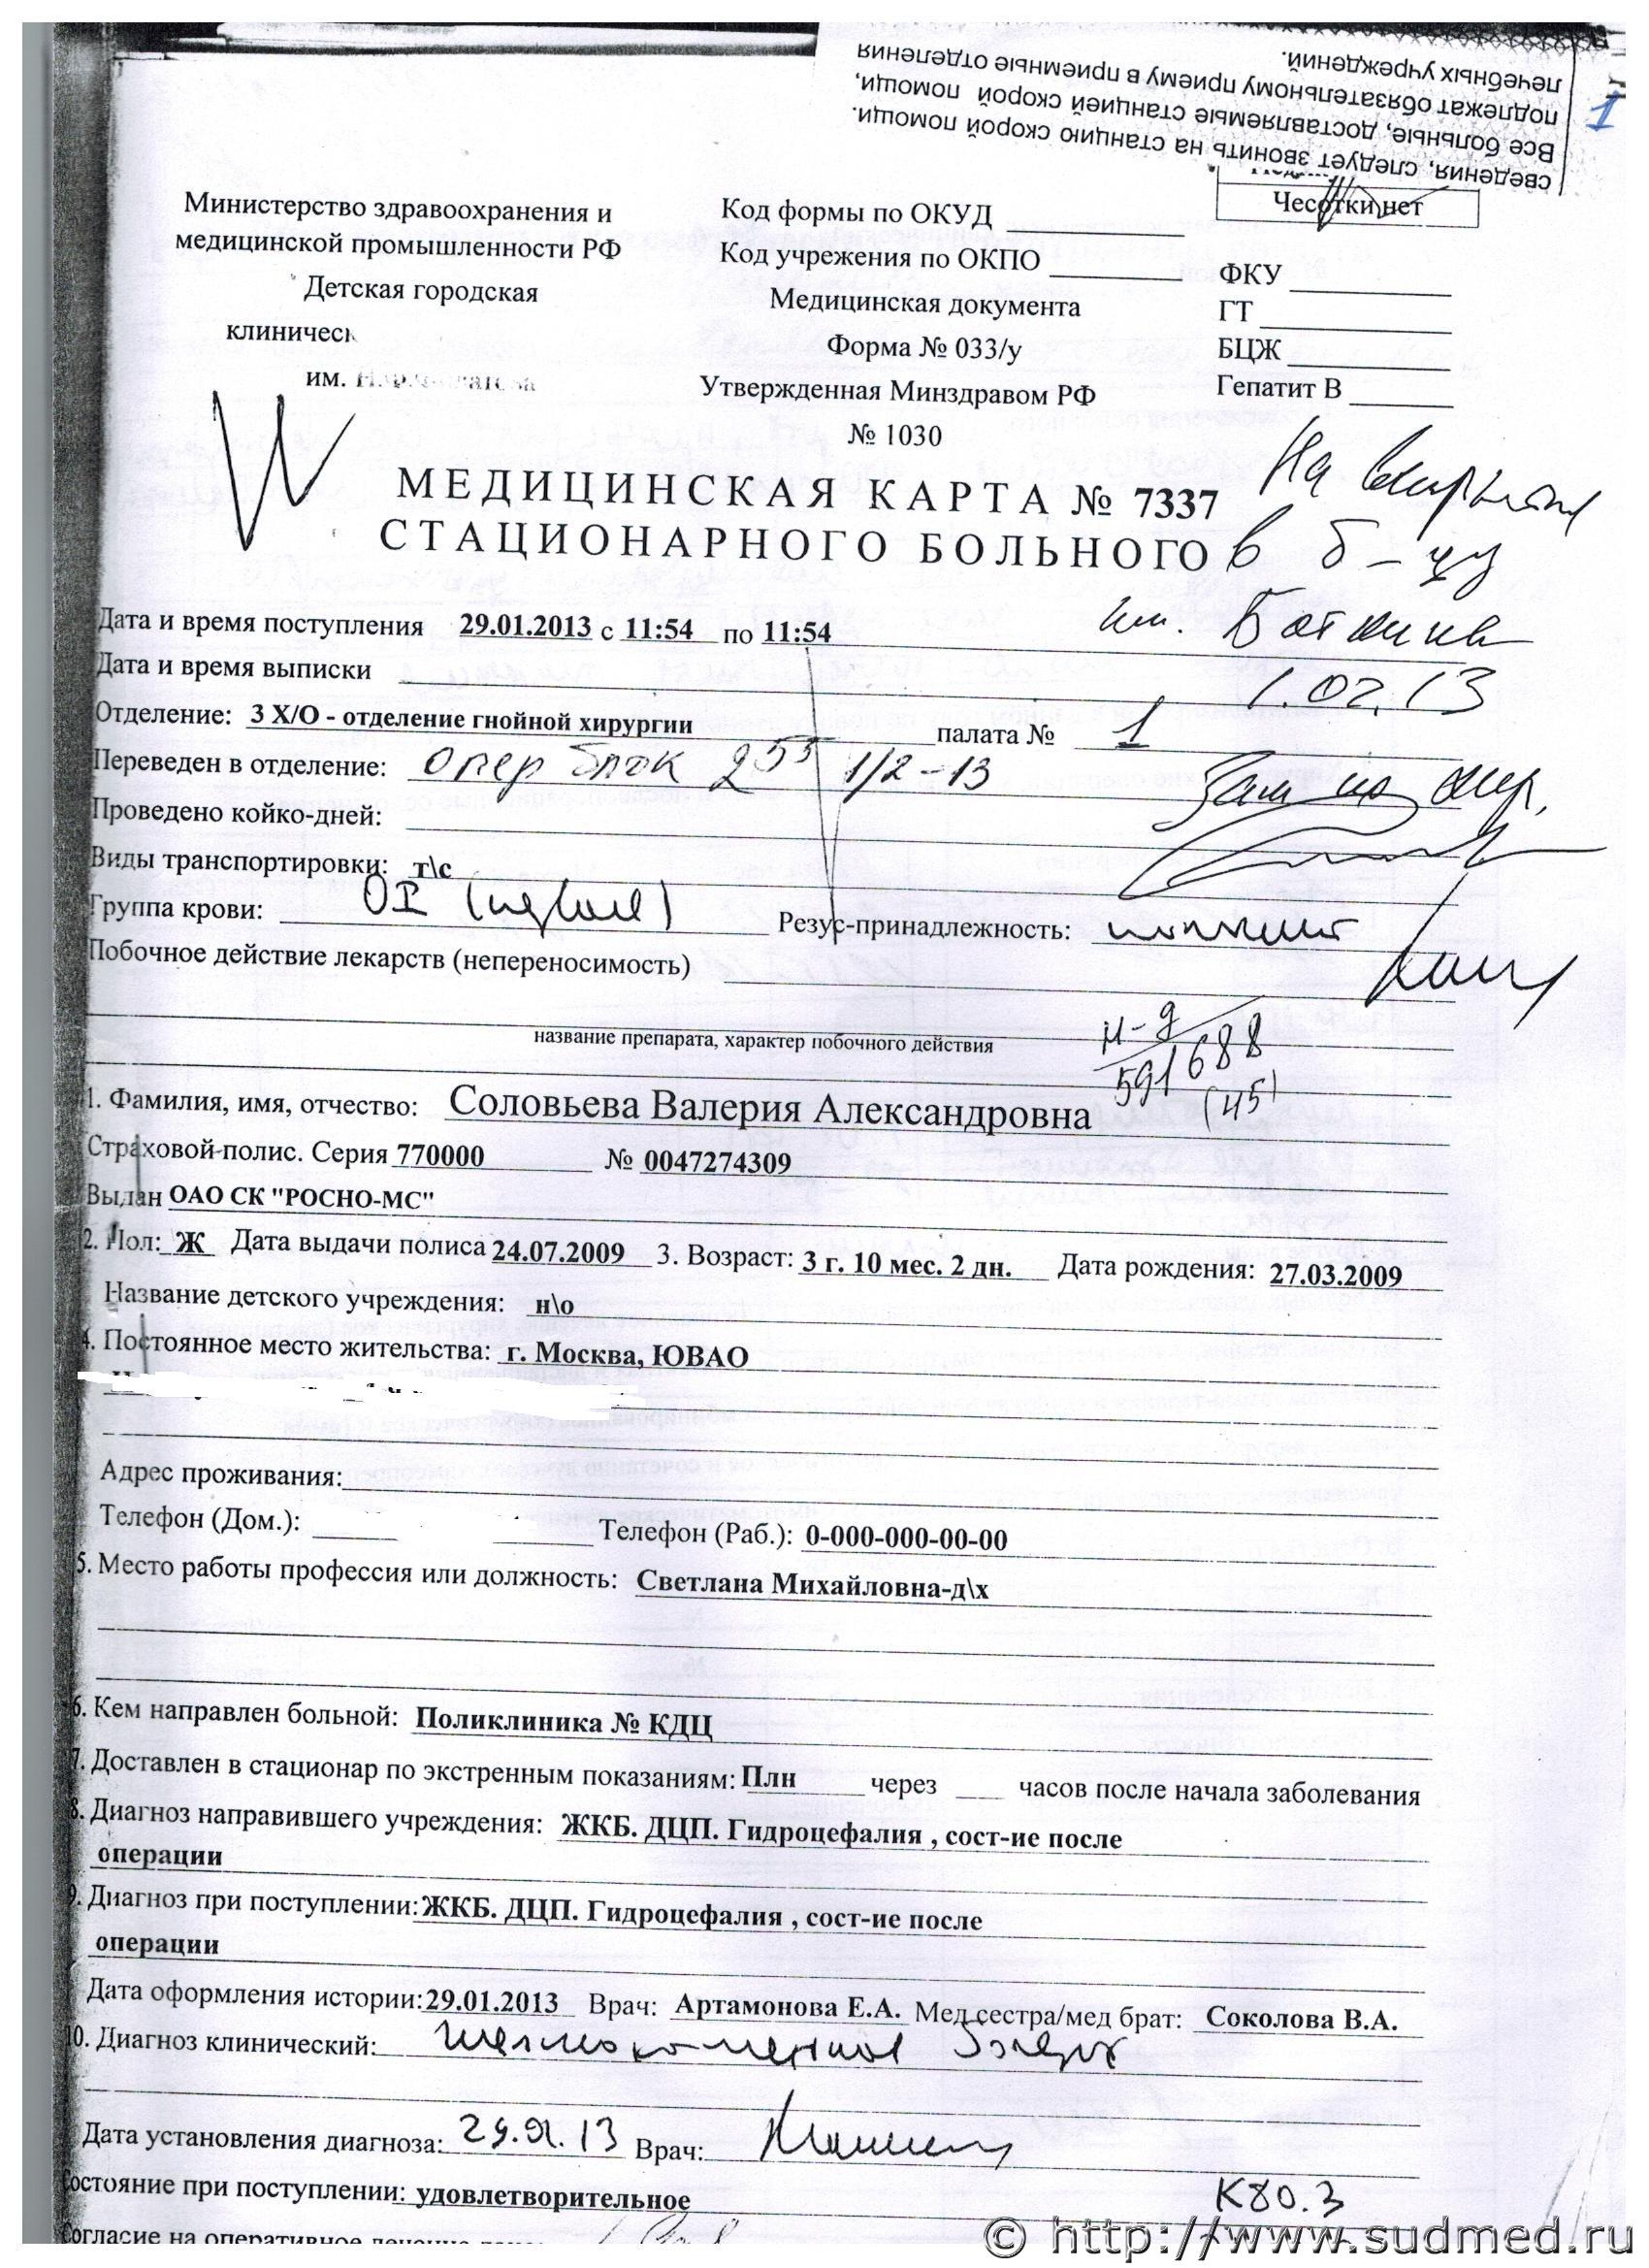 сведения, следует звонить на станцию скорой помощи.
Все больные, доставляемые станцией скорой помощи,
подлежат обязательному приему в приемные отделения
лечебных учреждений.
1
Чесотки нет
Министерство здравоохранения и
медицинской промышленности РФ
Детская городская
клиническ
им.
Код формы по ОКУД
Код учрежения по ОКПО
Медицинская документа
Форма № 033/у
Утвержденная Минздравом РФ
№ 1030
ФКУ
ГТ
БЦЖ
Гепатит В
МЕДИЦИНСКАЯ КАРТА № 7337
СТАЦИОНАРНОГО БОЛЬНОГО
На вскрытие
в б-цу
им. Боткина
1.02.13
Зам по хир.
Дата и время поступления 29.01.2013 с 11:54 по 11:54
Дата и время выписки
Отделение: 3 Х/О - отделение гнойной хирургии палата № 1
Переведен в отделение: Опер блок 2 55 1/2-13
Проведено койко-дней:
Виды транспортировки: т\с
Группа крови: OI (первая) Резус-принадлежность:
Побочное действие лекарств (непереносимость)
название препарата, характер побочного действия
и-д
591688
(45)
1. Фамилия, имя, отчество: Соловьева Валерия Александровна
Страховой полис. Серия 770000 № 0047274309
Выдан ОАО СК "РОСНО-МС"
2. Пол: Ж Дата выдачи полиса 24.07.2009 3. Возраст: 3 г. 10 мес. 2 дн. Дата рождения: 27.03.2009
Название детского учреждения: н\о
4. Постоянное место жительства: г. Москва, ЮВАО
Адрес проживания:
Телефон (Дом.): Телефон (Раб.): 0-000-000-00-00
5. Место работы профессия или должность: Светлана Михайловна-д\х
6. Кем направлен больной: Поликлиника № КДЦ
7. Доставлен в стационар по экстренным показаниям: Плн через часов после начала заболевания
8. Диагноз направившего учреждения: ЖКБ. ДЦП. Гидроцефалия , сост-ие после
операции
9. Диагноз при поступлении: ЖКБ. ДЦП. Гидроцефалия , сост-ие после
операции
Дата оформления истории: 29.01.2013 Врач: Артамонова Е.А. Мед.сестра/мед брат: Соколова В.А.
10. Диагноз клинический: Желчнокаменная болезнь
Дата установления диагноза: 29.01.13 Врач:
Состояние при поступлении: удовлетворительное
K80.3
Согласие на оперативное лечение
© http://www.sudmed.ru